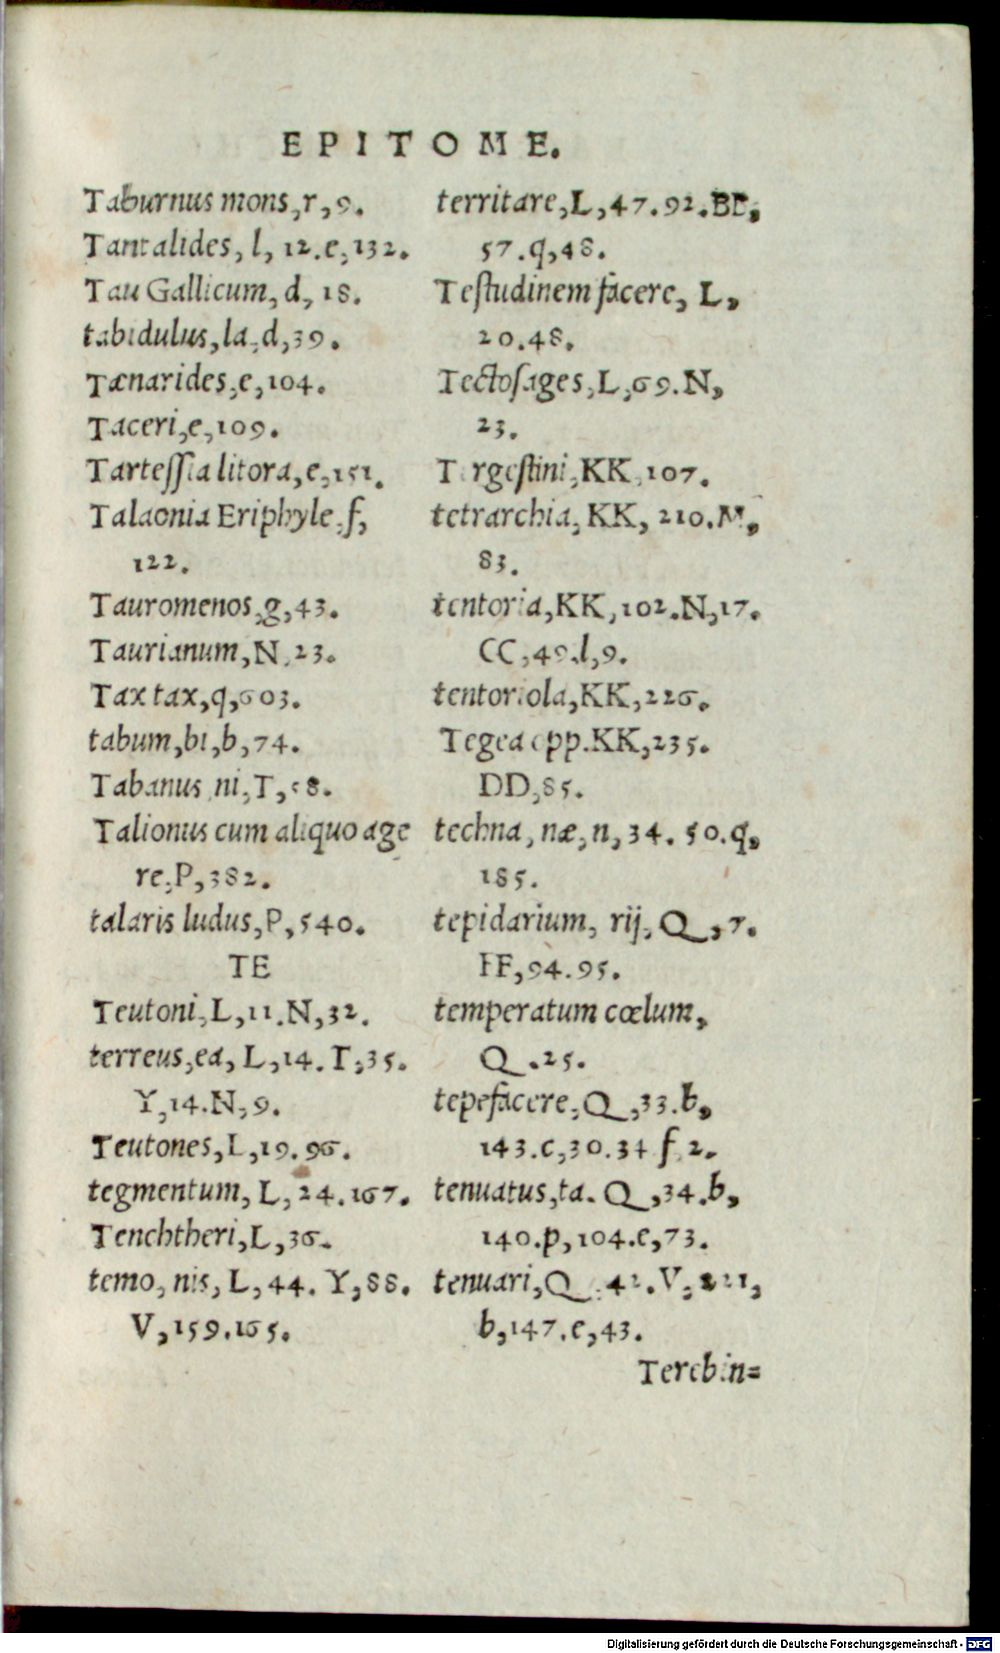 EPITOME.
Taburnus mons, r, 9.
Tantalides, l, 12. e, 132.
Tau Gallicum, d, 18.
tabidulus, la, d, 39.
Tænarides, e, 104.
Taceri, e, 109.
Tartessia litora, e, 151.
Talaonia Eriphyle, f,
122.
Tauromenos, g, 43.
Taurianum, N, 23.
Tax tax, q, 603.
tabum, bi, b, 74.
Tabanus ni, T, 58.
Talionus cum aliquo age
re, P, 382.
talaris ludus, P, 540.
TE
Teutoni, L, 11. N, 32.
terreus, ea, L, 14. T, 35.
Y, 14. N, 9.
Teutones, L, 19. 96.
tegmentum, L, 24. 167.
Tenchtheri, L, 36.
temo, nis, L, 44. Y, 88.
V, 159. 165.
territare, L, 47. 92. BB,
57. q, 48.
Testudinem facere, L,
20. 48.
Tectosages, L, 69. N,
23.
Tergestini, KK, 107.
tetrarchia, KK, 210. M,
83.
tentoria, KK, 102. N, 17.
CC, 49. l, 9.
tentoriola, KK, 226.
Tegea opp. KK, 235.
DD, 85.
techna, næ, n, 34. 50. q,
185.
tepidarium, rij, Q, 7.
FF, 94. 95.
temperatum cœlum,
Q. 25.
tepefacere, Q, 33. b,
143. c, 30. 34 f, 2.
tenuatus, ta. Q, 34. b,
140. p, 104. e, 73.
tenuari, Q, 42. V, 221,
b, 147. e, 43.
Terebin=
Digitalisierung gefördert durch die Deutsche Forschungsgemeinschaft - DFG